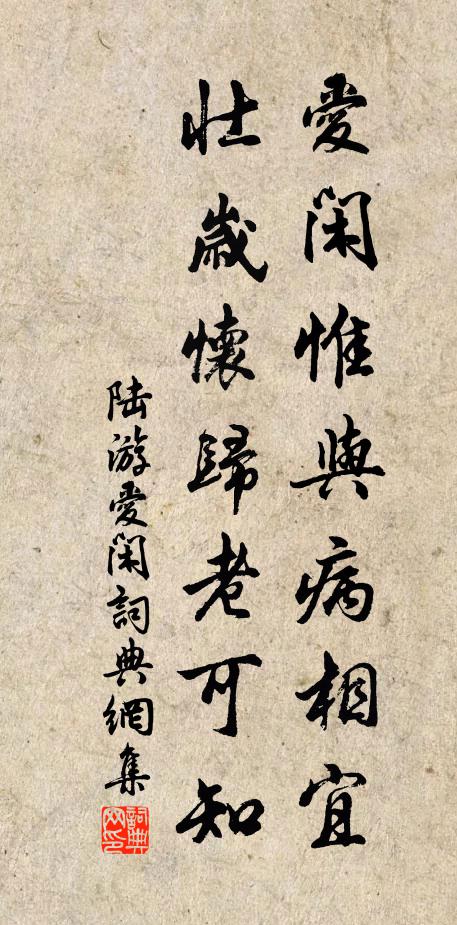 愛閑惟與病相宜
壯歲懷歸老可知
陆游愛閑詞典網集
詞典網印